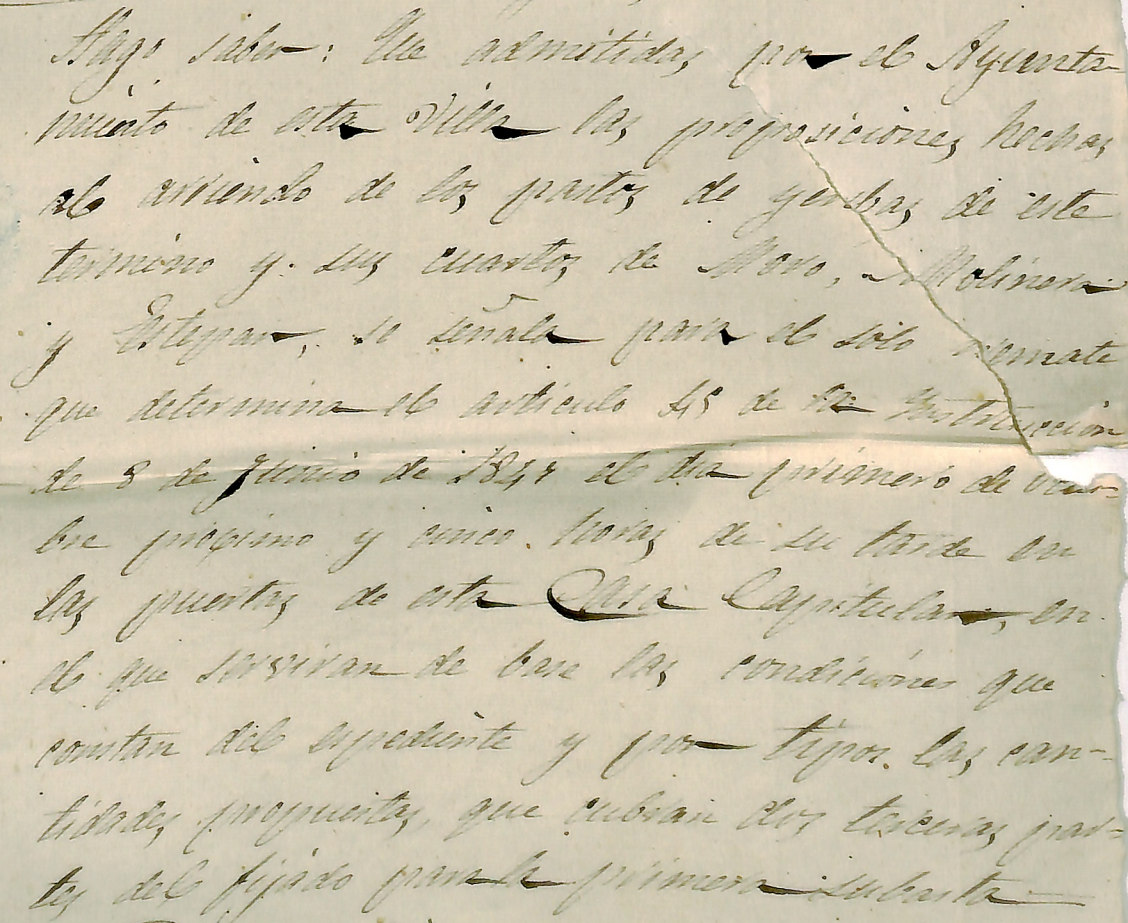 Hago saber: Que admitidas por el Ayunta-
miento de esta Villa las proposiciones hechas
al arriendo de los pastos de yerbas de este
termino y sus cuartos de Moro, Molinera
y Estepar, se señala para el solo remate
que determina el articulo 45 de la Instruccion
de 8 de Junio de 1847 el dia primero de octu-
bre proximo y cinco horas de su tarde en
las puertas de esta Casa Capitular, en
el que serviran de base las condiciones que
constan del espediente y por tipos las can-
tidades propuestas, que cubran dos terceras par-
tes del fijado para la primera subasta